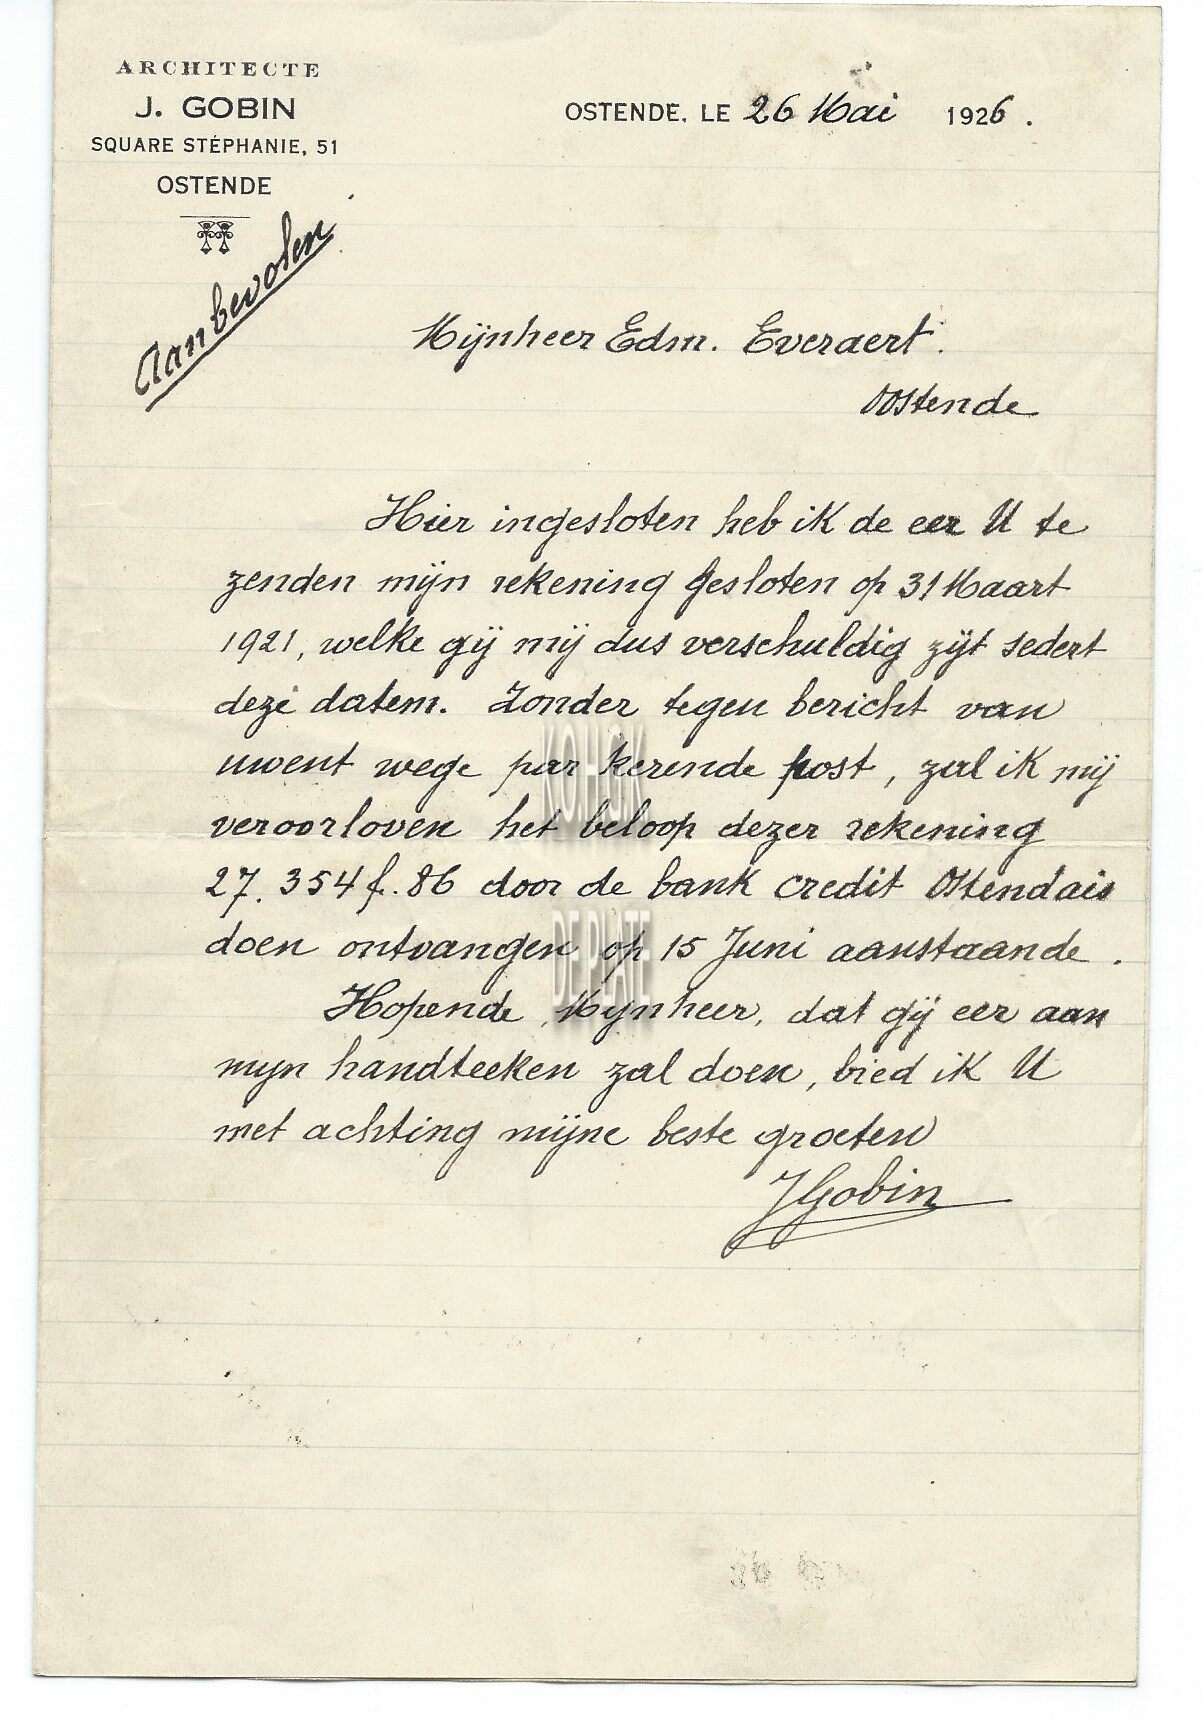 ARCHITECTE
J. GOBIN
SQUARE STÉPHANIE, 51
OSTENDE
OSTENDE, LE 26 Mai 1926.
Aanbevolen
Mijnheer Edm. Everaert.
Oostende
Hier ingesloten heb ik de eer U te
zenden mijn rekening gesloten op 31 Maart
1921, welke gij mij dus verschuldig zijt sedert
deze datem. Zonder tegen bericht van
uwent wege par kerende post, zal ik mij
veroorloven het beloop dezer rekening
27.354 f. 86 door de bank credit Ostendais
doen ontvangen op 15 Juni aanstaande.
Hopende, Mijnheer, dat gij eer aan
mijn handteeken zal doen, bied ik U
met achting mijne beste groeten
JGobin
KOHGK
DE PLATE